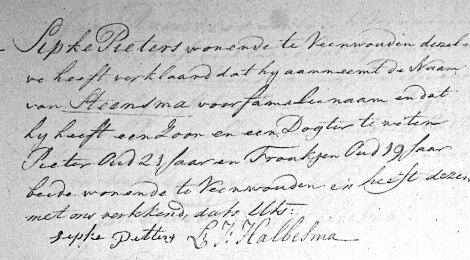 Sipke Pieters wonende te Veenwouden dezel-
ve heeft verklaard dat hy aanneemt de Naam
van Steensma voor famelie naam en dat
hy heeft een Zoon en een Dogter te weten
Pieter Oud 21 Jaar en Froukjen Oud 19 Jaar
beide wonende te Veenwouden en heeft dezen
met ons vertekend, dato Uts:
Sipke Pitters L: J: Halbesma